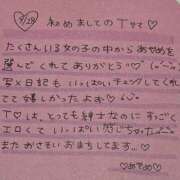 9/28 初めましてのTサマ♡
たくさんいる女の子の中からあやめを
選んでくれてありがとう♡
写メ日記もいっぱいチェックしてくれ
てて嬉しかったよ♡
T♡は、とっても紳士なのにすごく
エロくていっぱい感じちゃった
またおさそいおまちしてます。♡
♡あやめ♡